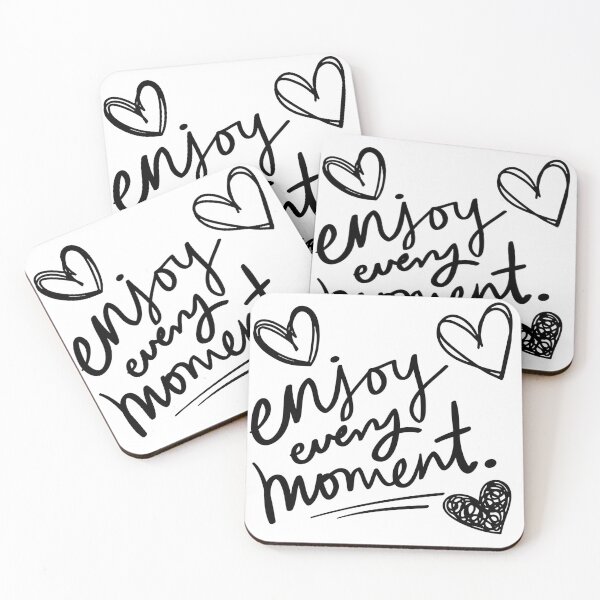 enjoy
enjoy
every
moment.
enjoy
every
moment
enjoy
every
moment.